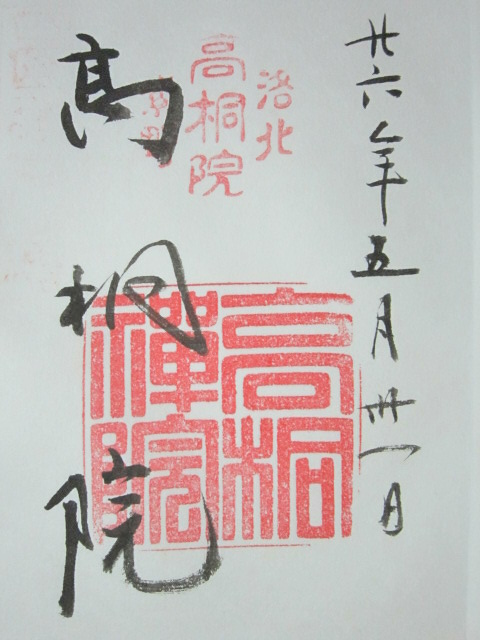 廿六年五月卅一日
洛北
高桐院
高桐禅院
高桐院